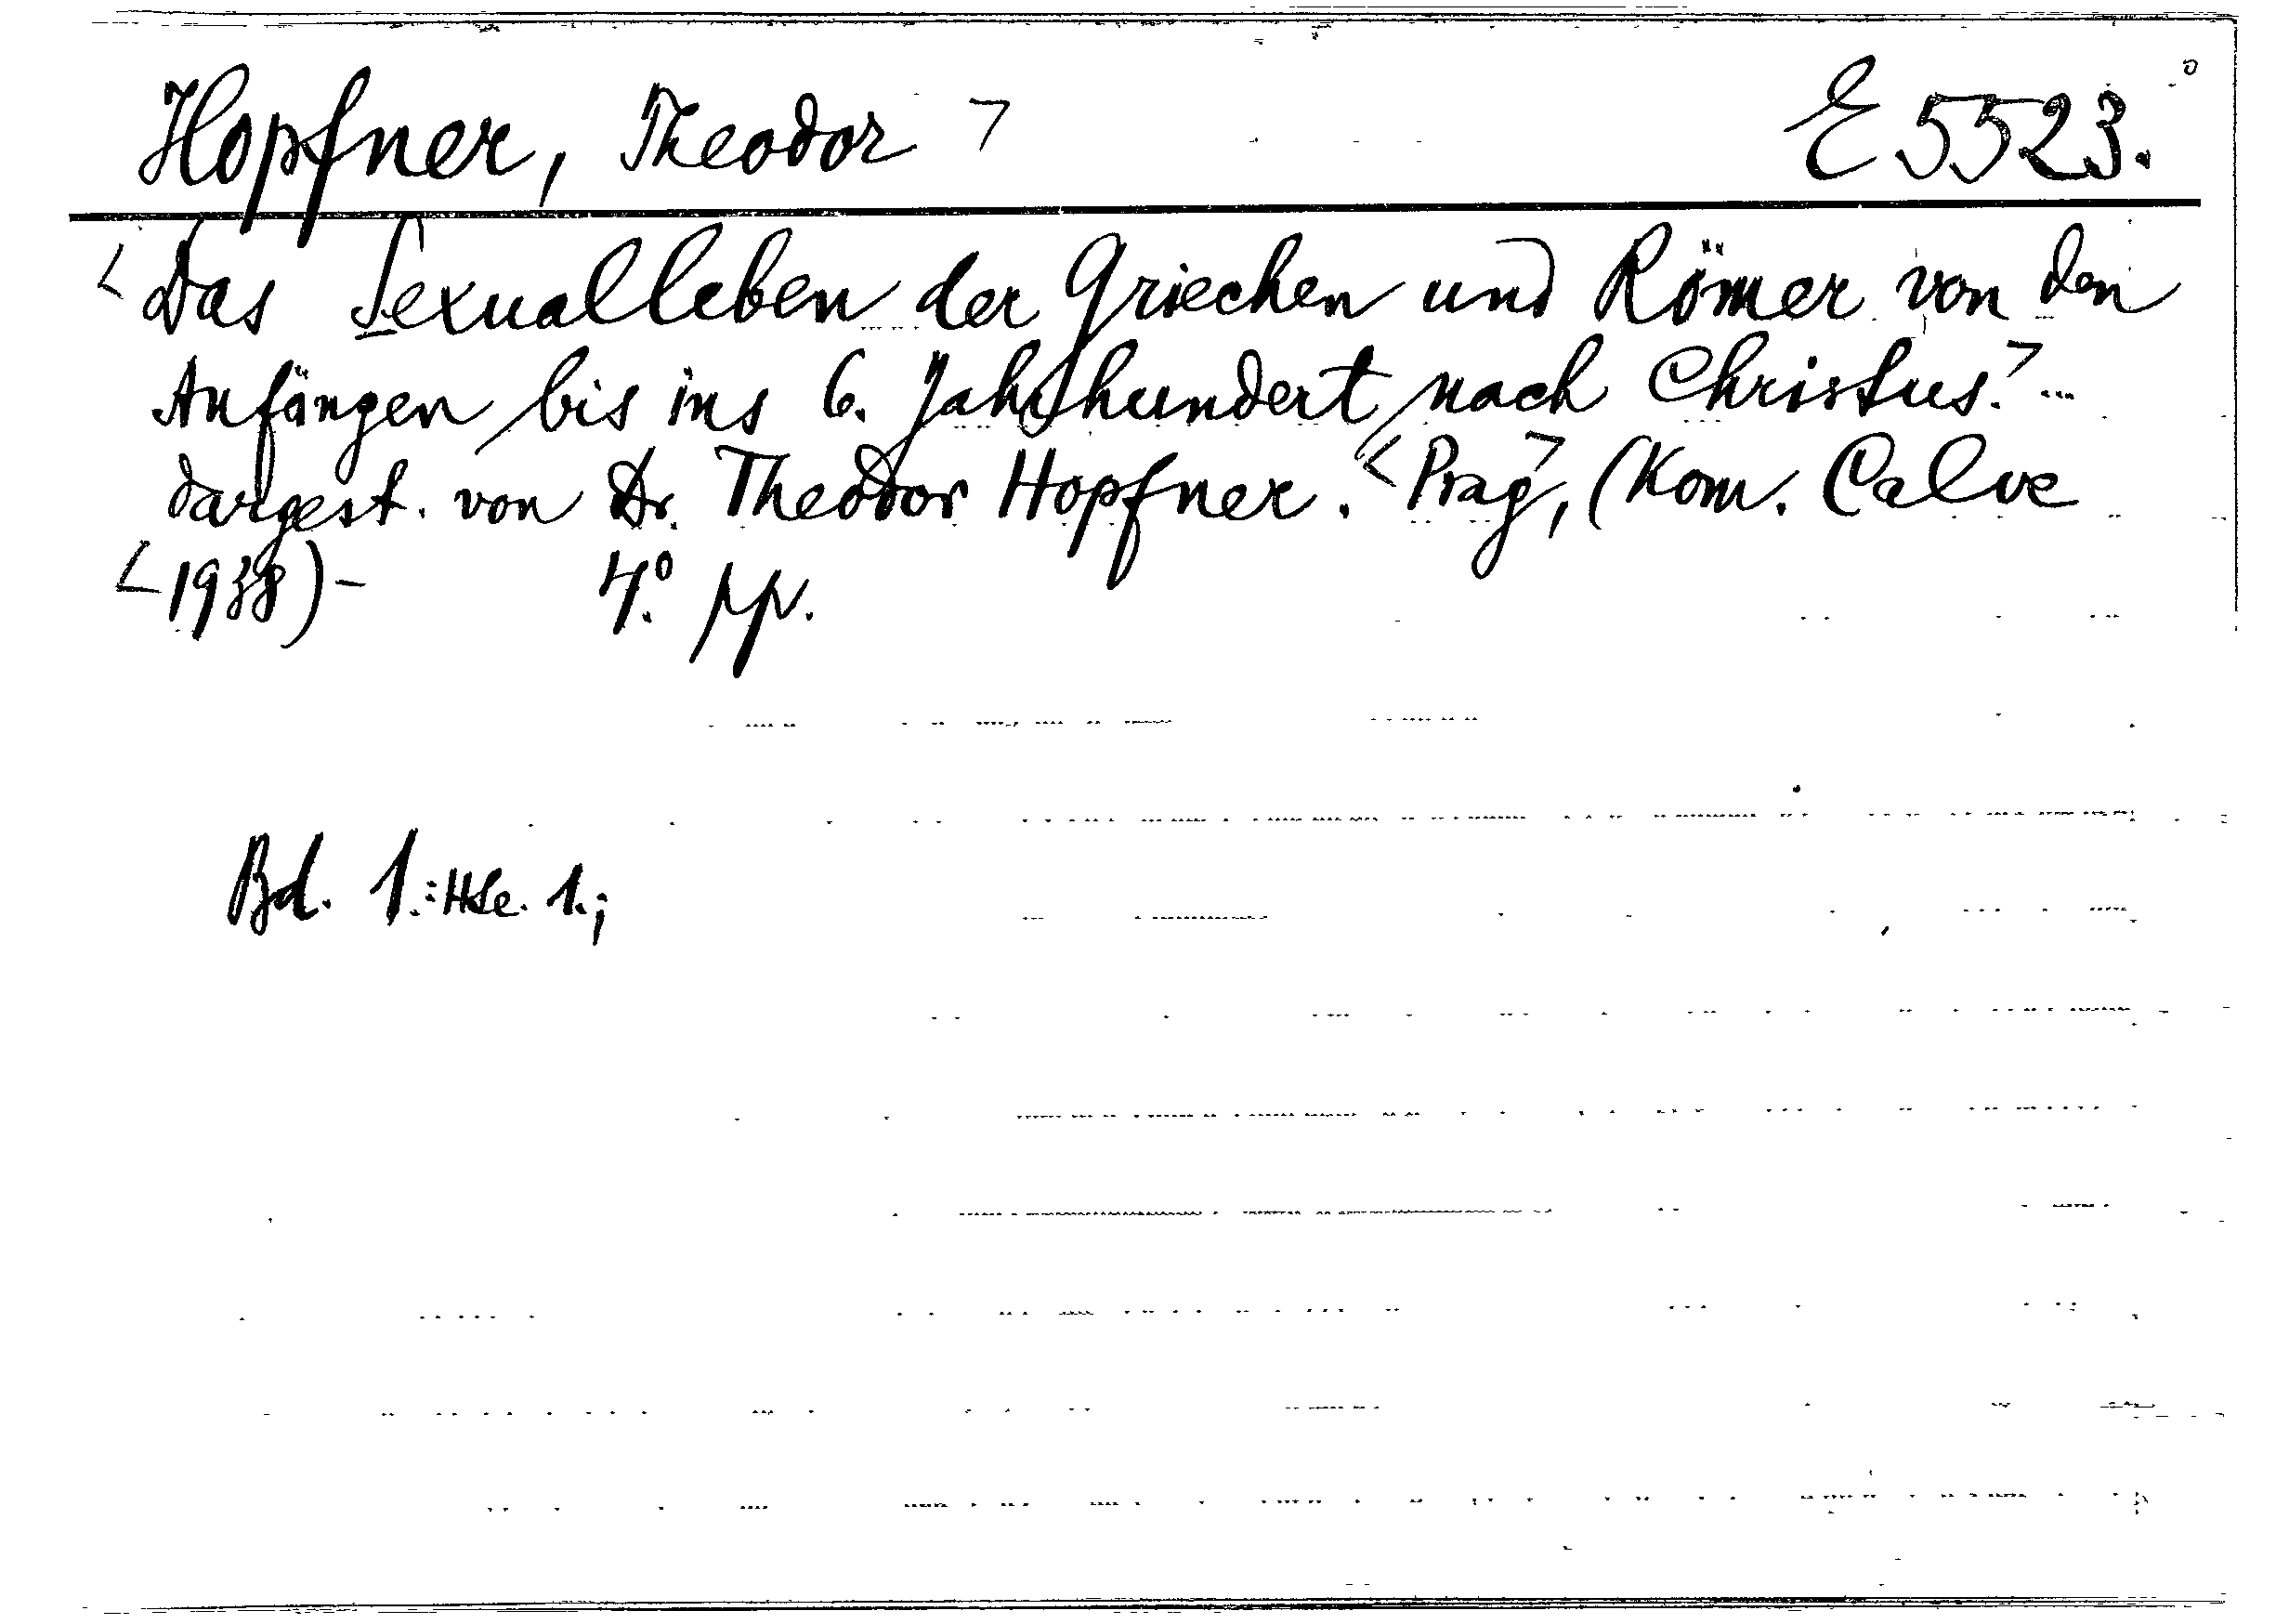 Hopfner, Theodor > E 5523.
< Das Sexualleben der Griechen und Römer von den
Anfängen bis ins 6. Jahrhundert nach Christus.> ...
dargest. von Dr. Theodor Hopfner. <Prag>, (Kom. Calve
<1938)- 4.° pp.
Bd. 1.: Hle. 1.;